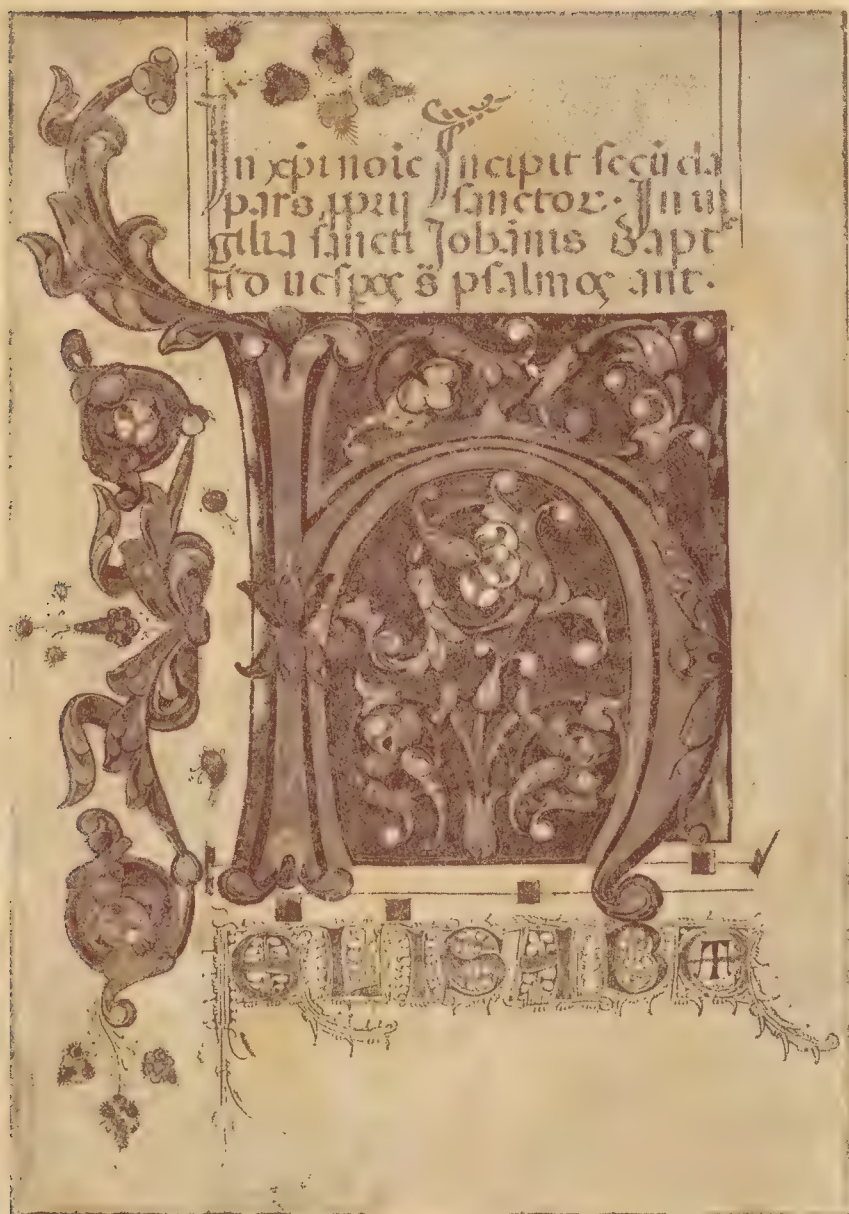 In xpi noie Incipit secūda
pars sanctor. In ui
gilia sancti Johānis Bapt
Ad uesp̄ s̄ psalmos ant.
h
ELISABET